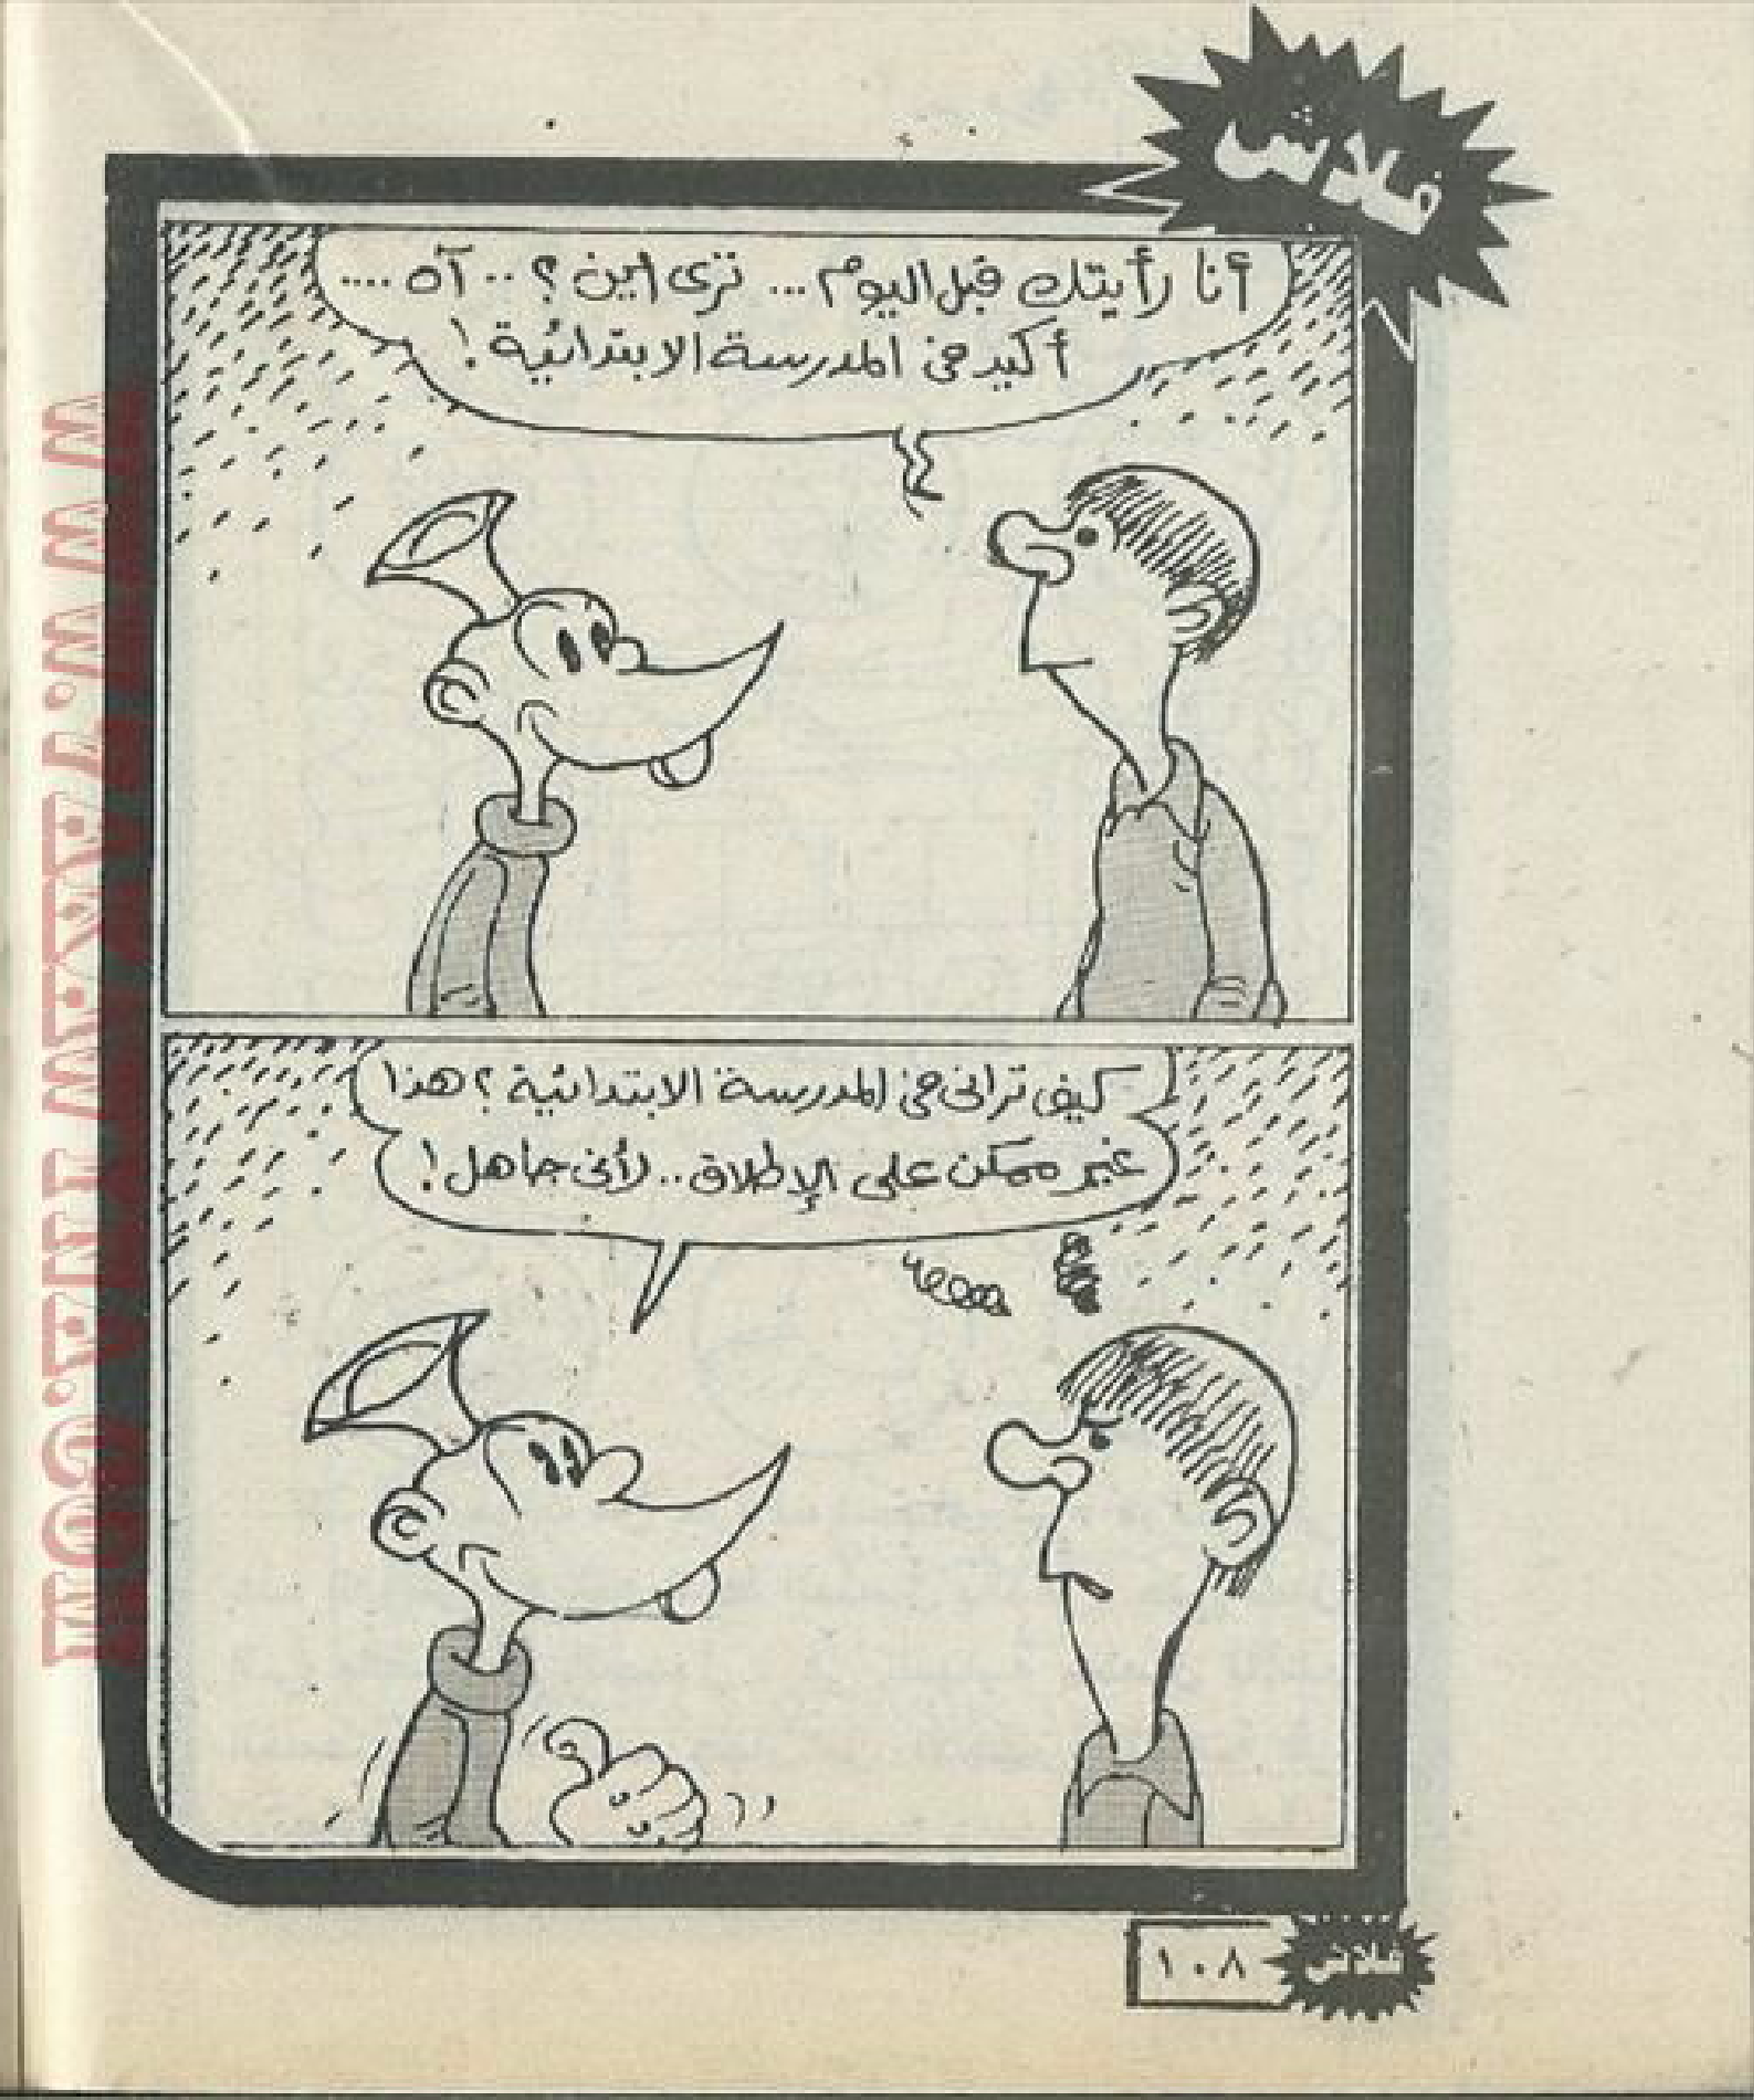 فلاش
أنا رأيتك قبل اليوم ... ترى اين ؟ .. آه ....
أكيد فى المدرسة الابتدائية !
كيف ترانى فى المدرسة الابتدائية ؟ هذا
غير ممكن على الإطلاق .. لأنى جاهل !
فلاش
١٠٨